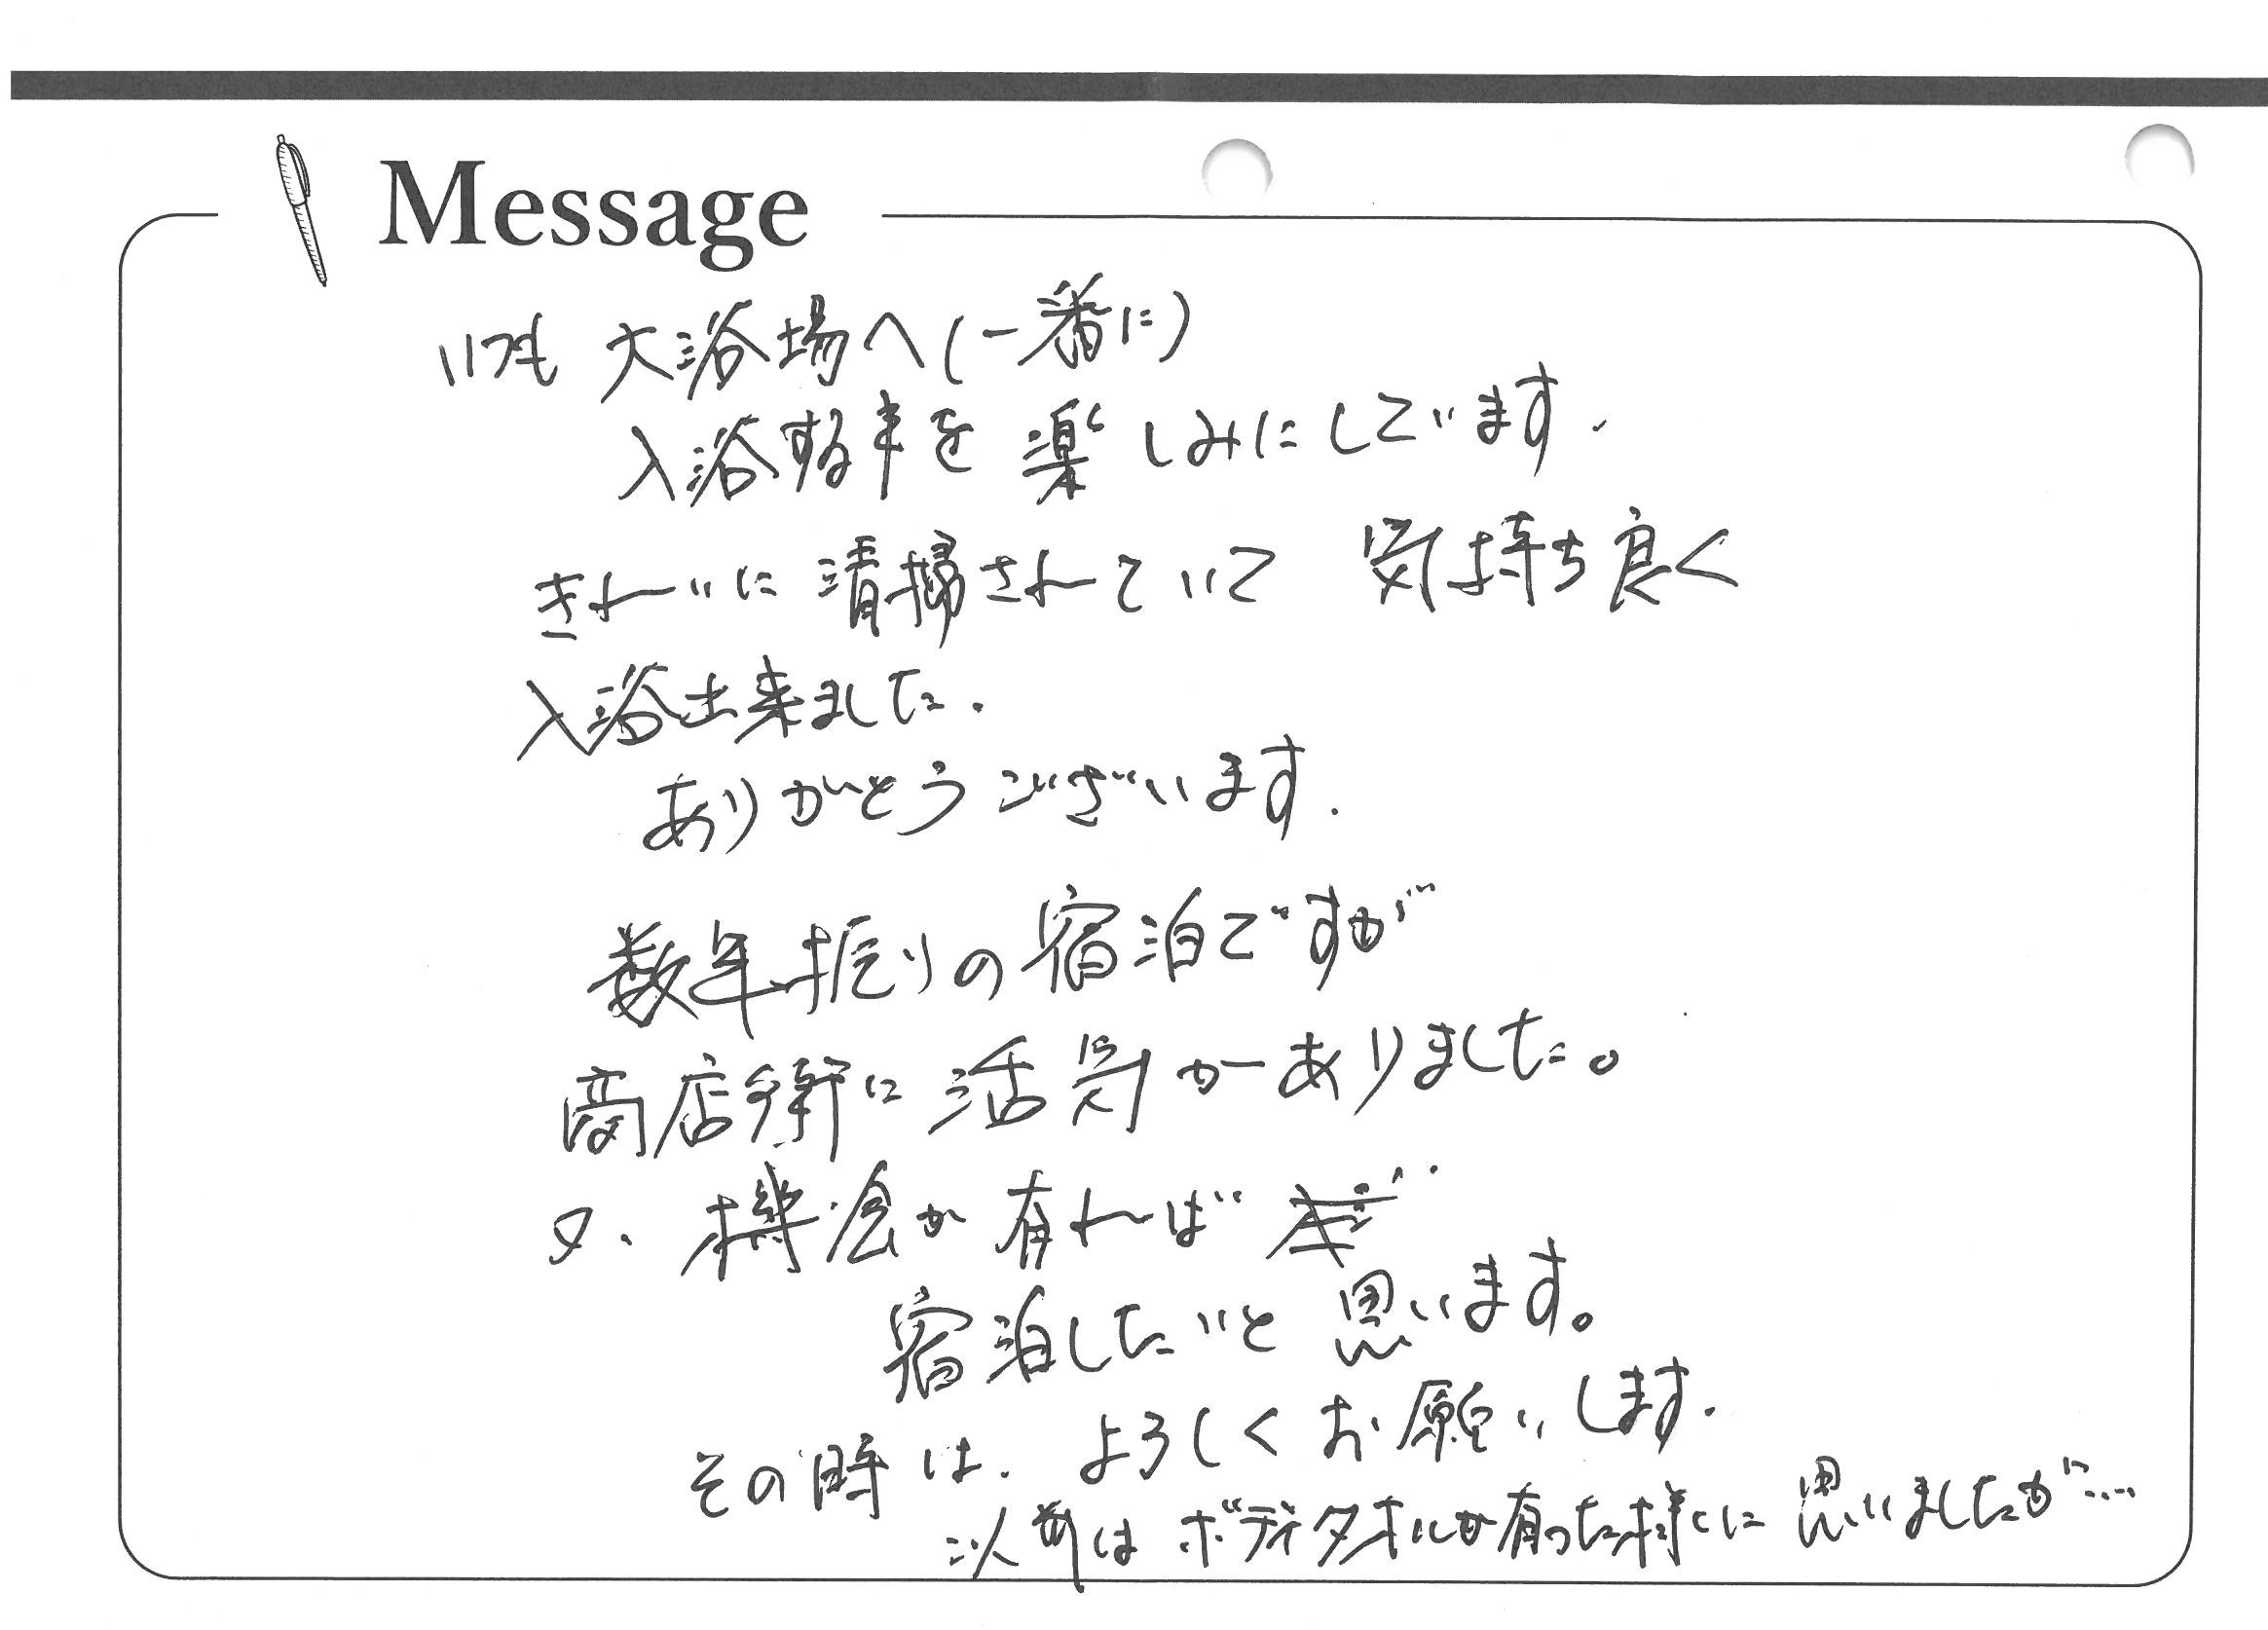 Message
いつも 大浴場へ(一番に)
入浴する事を 楽しみにしています.
きれいに 清掃されていて 気持ち良く
入浴出来ました.
ありがとうございます.
数年振りの宿泊ですが
商店街に 活気がありました。
又、機会が有れば
宿泊したいと 思います。
その時は、よろしくお願いします.
以前は ボディタオルが有った様に 思いましたが…